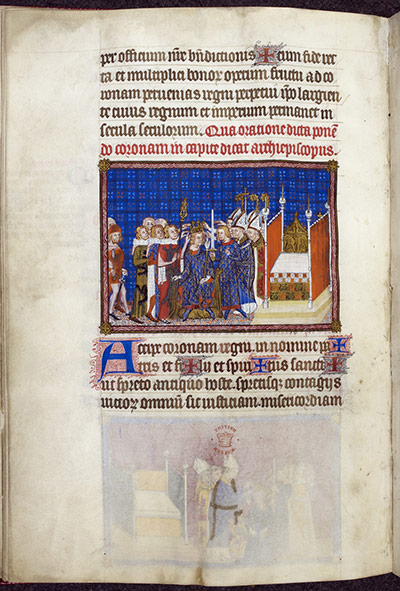 per officium nr̄e bn̄dictionis ✠ cum fide rec
ta et multiplici bonor̄ operum fructu ad co
ronam peruenias regni perpetui ip̄o largien
te cuius regnum et imperium permanet in
secula seculorum. Qua oratione dicta ponen
do coronam in capite dicat archiepiscopus.
Accipe coronam regni. in nomine pa ✠
tris et fi ✠ lij et spiri ✠ tus sancti ✠
ut spreto antiquo hoste. spretisq; contagijs
uitior̄ omniū sic iusticiam. misericordiam